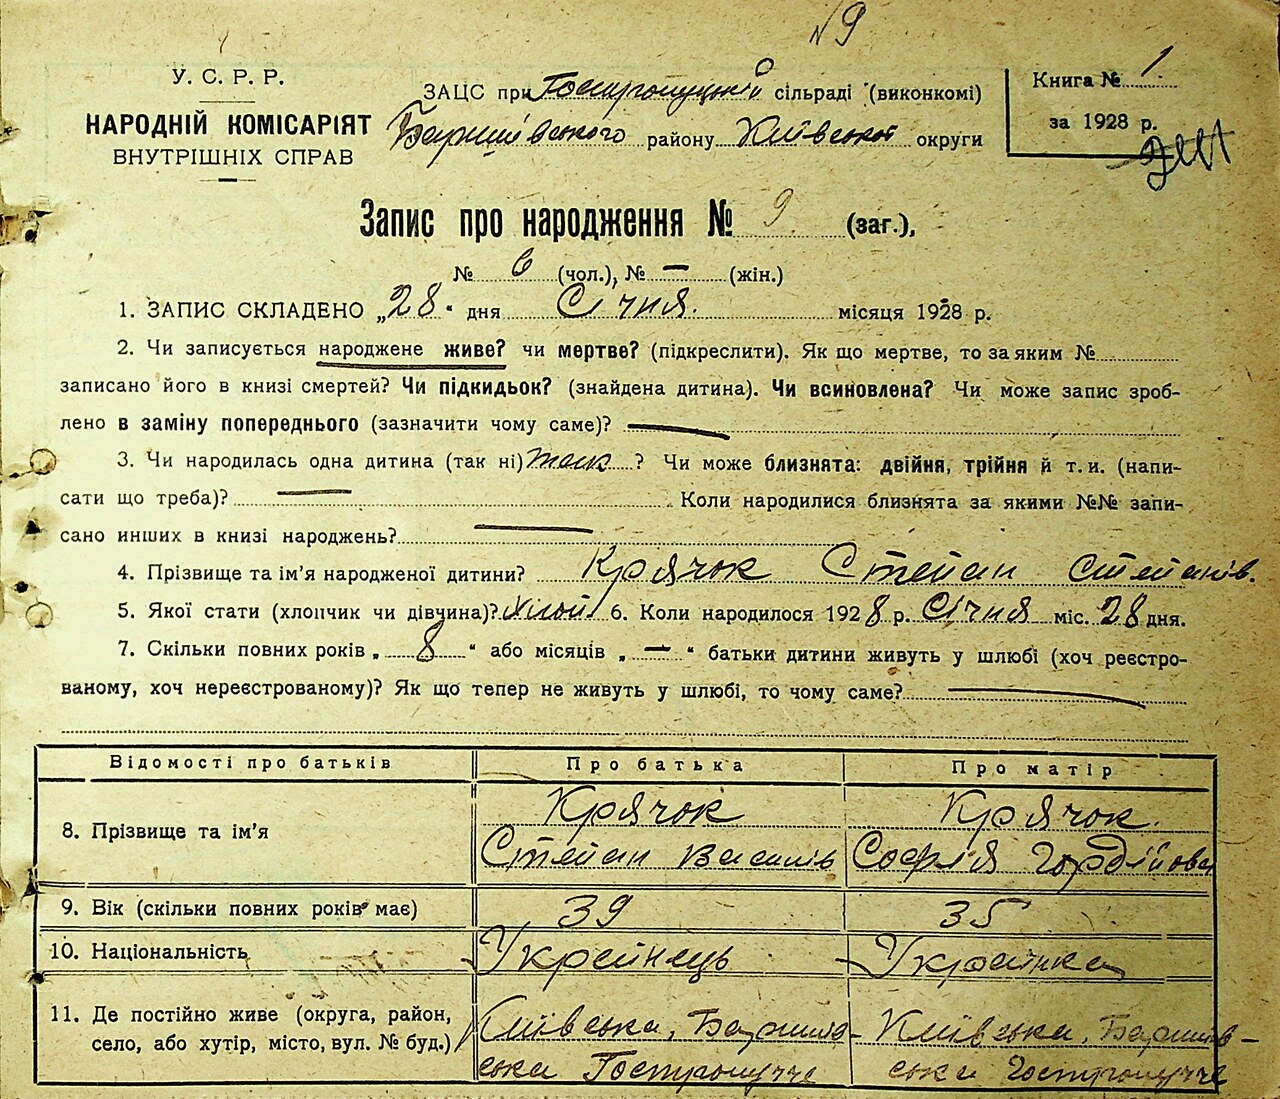 № 9
У. С. Р. Р.
НАРОДНІЙ КОМІСАРІЯТ
ВНУТРІШНІХ СПРАВ
ЗАЦС при Гостролуцькій сільраді (виконкомі)
Баришівського району Київської округи
Книга № 1
за 1928 р.
Запис про народження № 9 (заг.),
№ 6 (чол.), № — (жін.)
1. ЗАПИС СКЛАДЕНО „28“ дня Січня місяця 1928 р.
2. Чи записується народжене живе? чи мертве? (підкреслити). Як що мертве, то за яким №
записано його в книзі смертей? Чи підкидьок? (знайдена дитина). Чи всиновлена? Чи може запис зроб-
лено в заміну попереднього (зазначити чому саме)? —
3. Чи народилась одна дитина (так ні) так ? Чи може близнята: двійня, трійня й т. и. (напи-
сати що треба)? — Коли народилися близнята за якими №№ запи-
сано инших в книзі народжень? —
4. Прізвище та ім'я народженої дитини? Крячок Степан Степанів.
5. Якої стати (хлопчик чи дівчина)? 6. Коли народилося 1928 р. Січня міс. 28 дня.
7. Скільки повних років „ 8 “ або місяців „ — “ батьки дитини живуть у шлюбі (хоч реєстро-
ваному, хоч нереєстрованому)? Як що тепер не живуть у шлюбі, то чому саме? —
Відомості про батьків Про батька Про матір
8. Прізвище та ім'я Крячок Степан Василів Крячок. Софія Гордійова
9. Вік (скільки повних років має) 39 35
10. Національність Українець Українка
11. Де постійно живе (округа, район, Київська, Баришів- Київська, Баришів-
село, або хутір, місто, вул. № буд.) ська Гостролуччє ська Гостролуччє